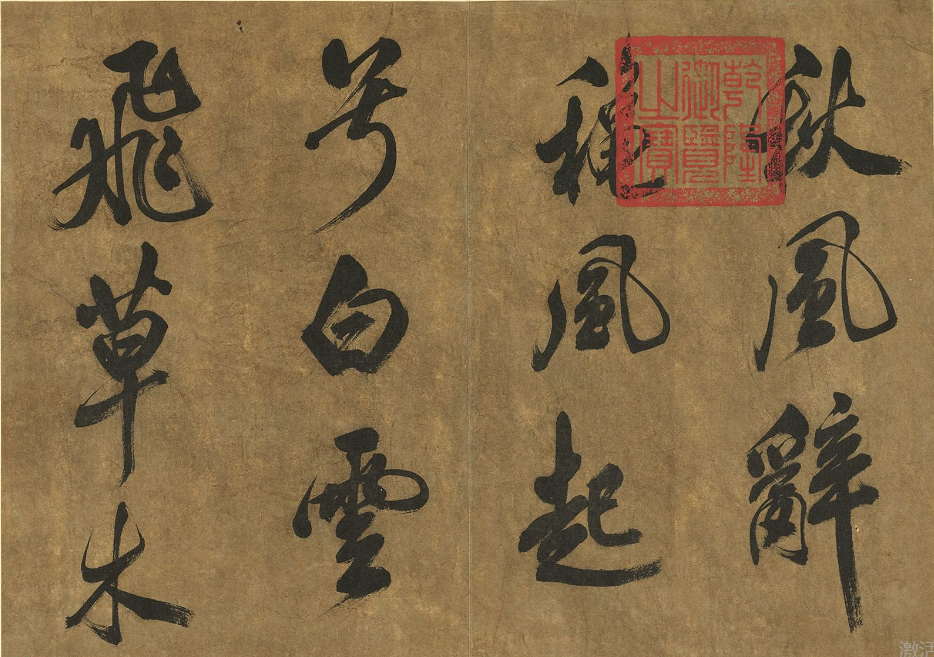 秋風辭
秋風起
兮白雲
飛草木
乾隆
御覽
之寶
激活